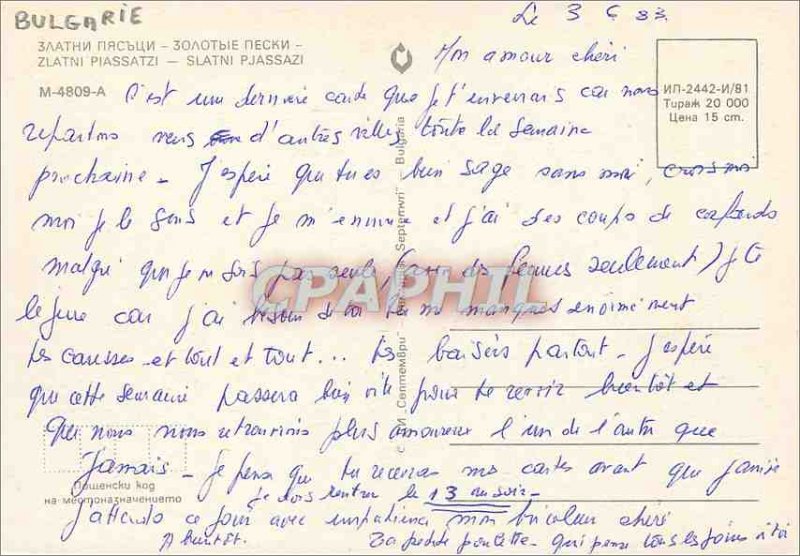 BULGARIE
Le 3 6 83.
ЗЛАТНИ ПЯСЪЦИ – ЗОЛОТЫЕ ПЕСКИ –
ZLATNI PIASSATZI — SLATNI PJASSAZI
Mon amour chéri
М-4809-А
ИП-2442-И/81
Тираж 20 000
Цена 15 ст.
C'est une dernière carte que je t'enverrais car nous
repartons vers d'autres villes toute la semaine
prochaine - J'espère que tu es bien sage sans moi, crois moi
moi je le suis et je m'ennuie et j'ai des coups de cafards
malgré que je ne sois pas seule, (avec des femmes seulement) je te
le jure car j'ai besoin de toi tu me manques énormément
tes caresses et tout et tout... tes baisers partout - J'espère
que cette semaine passera bien vite pour te revoir bientôt et
que nous nous retrouvions plus amoureux l'un de l'autre que
Jamais - Je pense que tu recevras mes cartes avant que j'arrive
je dois rentrer le 13 au soir -
J'attends ce jour avec impatience mon bricoleur chéri
A bientôt. Ta petite poulette - qui pense tous les jours à toi
Пощенски код
на местоназначението
СИ „Септември" — "Septemvri" — Bulgaria
CPAPHIL